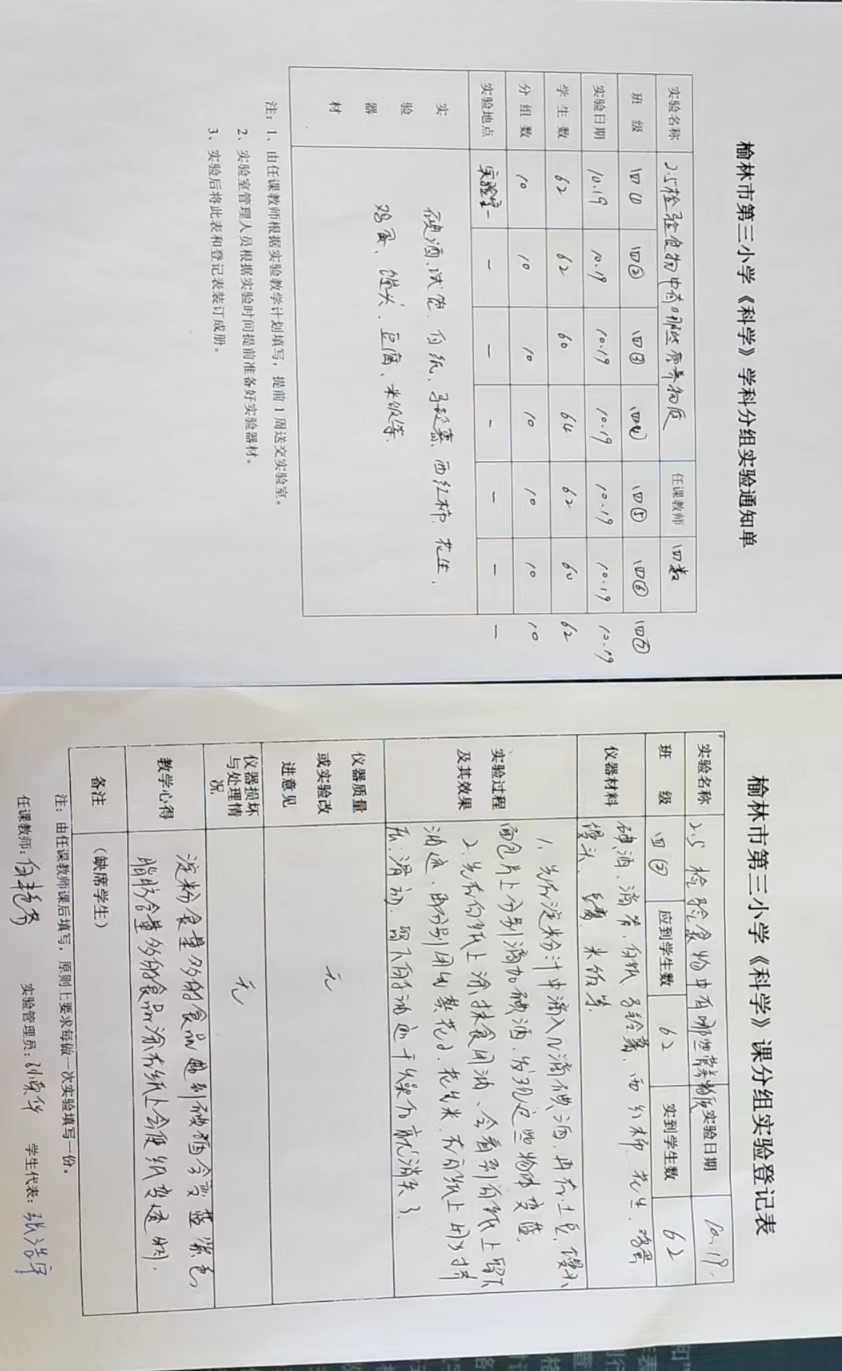 榆林市第三小学《科学》学科分组实验通知单
实验名称 2.5检验食物中有哪些营养物质 任课教师 四教
班级 四① 四② 四③ 四④ 四⑤ 四⑥ 四⑦
实验日期 10.19 10.19 10.19 10.19 10.19 10.19 10.19
学生数 62 62 60 64 62 60 62
分组数 10 10 10 10 10 10 10
实验地点 实验室一 一 一 一 一 一 一
实验器材
碘酒、试管、白纸、马铃薯、西红柿、花生、
鸡蛋、馒头、豆腐、米饭等.
注：1、由任课教师根据实验教学计划填写，提前1周送交实验室。
2、实验室管理人员根据实验时间提前准备好实验器材。
3、实验后将此表和登记表装订成册。
榆林市第三小学《科学》课分组实验登记表
实验名称 2.5 检验食物中有哪些营养物质 实验日期 10.19.
班级 应到学生数 62 实到学生数 62
仪器材料
碘酒、滴管、白纸、马铃薯、西红柿、花生、鸡蛋
馒头、米饭等.
实验过程及其效果
1、先在淀粉汁中滴入几滴碘酒，再在土豆、馒头
面包片上分别滴加碘酒，发现这些物体变蓝.
2、先在白纸上涂抹食用油，会看到白纸上留下
油迹，花生米，在白纸上用力挤
压、滑动，留下的油迹干燥后就消失了.
仪器质量或实验改进意见
无
仪器损坏与处理情况
无
教学心得
淀粉含量多的食品遇到碘酒会变蓝紫色
脂肪含量多的食品涂在纸上会使纸变透明.
备注 （缺席学生）
注：由任课教师课后填写，原则上要求每做一次实验填写一份。
任课教师： 实验管理员： 学生代表：张浩宇